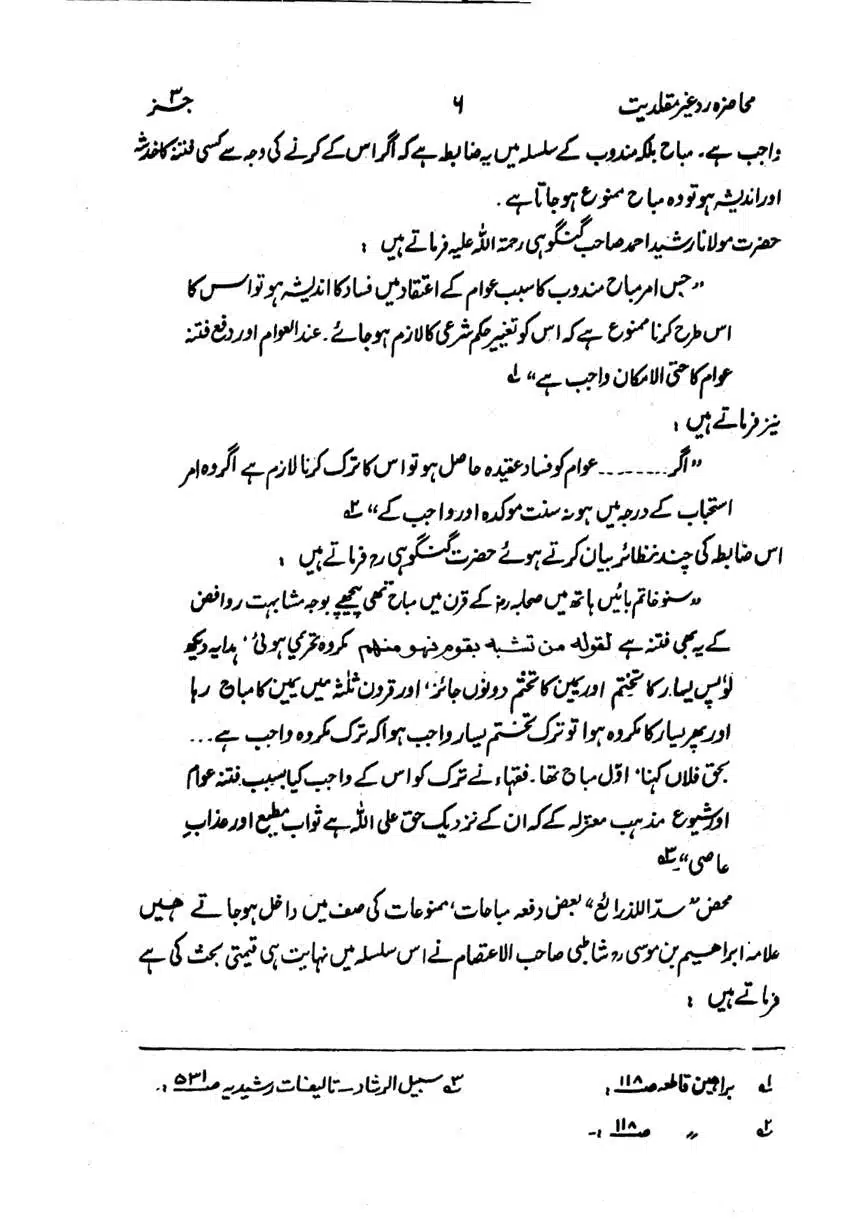 محاضرہ رد غیر مقلدیت ۶ جز ۳
واجب ہے۔ مباح بلکہ مندوب کے سلسلہ میں یہ ضابطہ ہے کہ اگر اس کے کرنے کی وجہ سے کسی فتنہ کا خدشہ
اور اندیشہ ہو تو وہ مباح ممنوع ہو جاتا ہے۔
حضرت مولانا رشید احمد صاحب گنگوہی رحمۃ اللہ علیہ فرماتے ہیں :
”جس امر مباح مندوب کا سبب عوام کے اعتقاد میں فساد کا اندیشہ ہو تو اس کا
اس طرح کرنا ممنوع ہے کہ اس کو تغییر حکم شرعی کا لازم ہو جائے۔ عند العوام اور دفع فتنہ
عوام کا حتی الامکان واجب ہے“ ۱؎
نیز فرماتے ہیں :
”اگر ........ عوام کو فساد عقیدہ حاصل ہو تو اس کا ترک کرنا لازم ہے اگر وہ امر
استحباب کے درجہ میں ہو نہ سنت موکدہ اور واجب کے“ ۲؎
اس ضابطہ کی چند نظائر بیان کرتے ہوئے حضرت گنگوہی رح فرماتے ہیں :
”سنو خاتم بائیں ہاتھ میں صحابہ رض کے قرن میں مباح تھی پیچھے بوجہ مشابہت روافض
کے یہ بھی فتنہ ہے لقولہ من تشبہ بقوم فہو منہم مکروہ تحریمی ہوئی، ہدایہ دیکھ
لو، پس یسار کا تختم اور یمین کا تختم دونوں جائز، اور قرون ثلثہ میں یمین کا مباح رہا
اور پھر یسار کا مکروہ ہوا تو ترک تختم یسار واجب ہوا کہ ترک مکروہ واجب ہے...
بحق فلاں کہنا، اوّل مباح تھا۔ فقہاء نے ترک کو اس کے واجب کیا بسبب فتنہ عوام
اور شیوع مذہب معتزلہ کے کہ ان کے نزدیک حق علی اللہ ہے ثواب مطیع اور عذابِ
عاصی“ ۳؎
محض ”سدّ اللذرائع“ بعض دفعہ مباحات، ممنوعات کی صف میں داخل ہو جاتے ہیں
علامہ ابراھیم بن موسی رح شاطبی صاحب الاعتصام نے اس سلسلہ میں نہایت ہی قیمتی بحث کی ہے
فرماتے ہیں :
۱؎ براھین قاطعہ صـ ۱۱۸ : ۳؎ سبیل الرشاد – تالیفات رشیدیہ صـ ۵۳۱ :۔
۲؎ ” صـ ۱۱۸ :۔